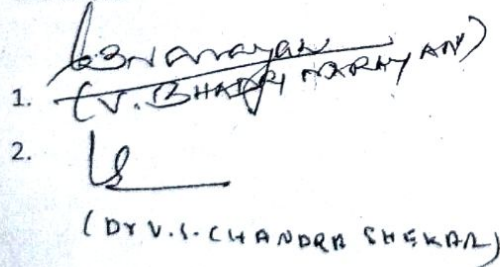 1. (V. BHADRI NARAYAN)
2.
(Dr V.S. CHANDRA SHEKAR)